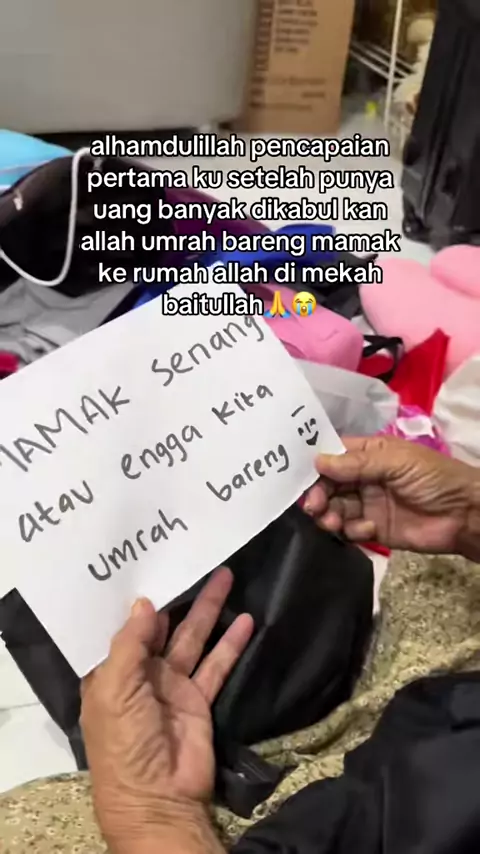 alhamdulillah pencapaian
pertama ku setelah punya
uang banyak dikabul kan
allah umrah bareng mamak
ke rumah allah di mekah
baitullah🙏😭
MAMAK senang
atau engga kita
umrah bareng